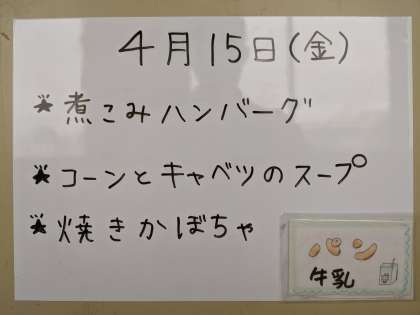 4月15日(金)
★煮こみハンバーグ
★コーンとキャベツのスープ
★焼きかぼちゃ
パン
牛乳